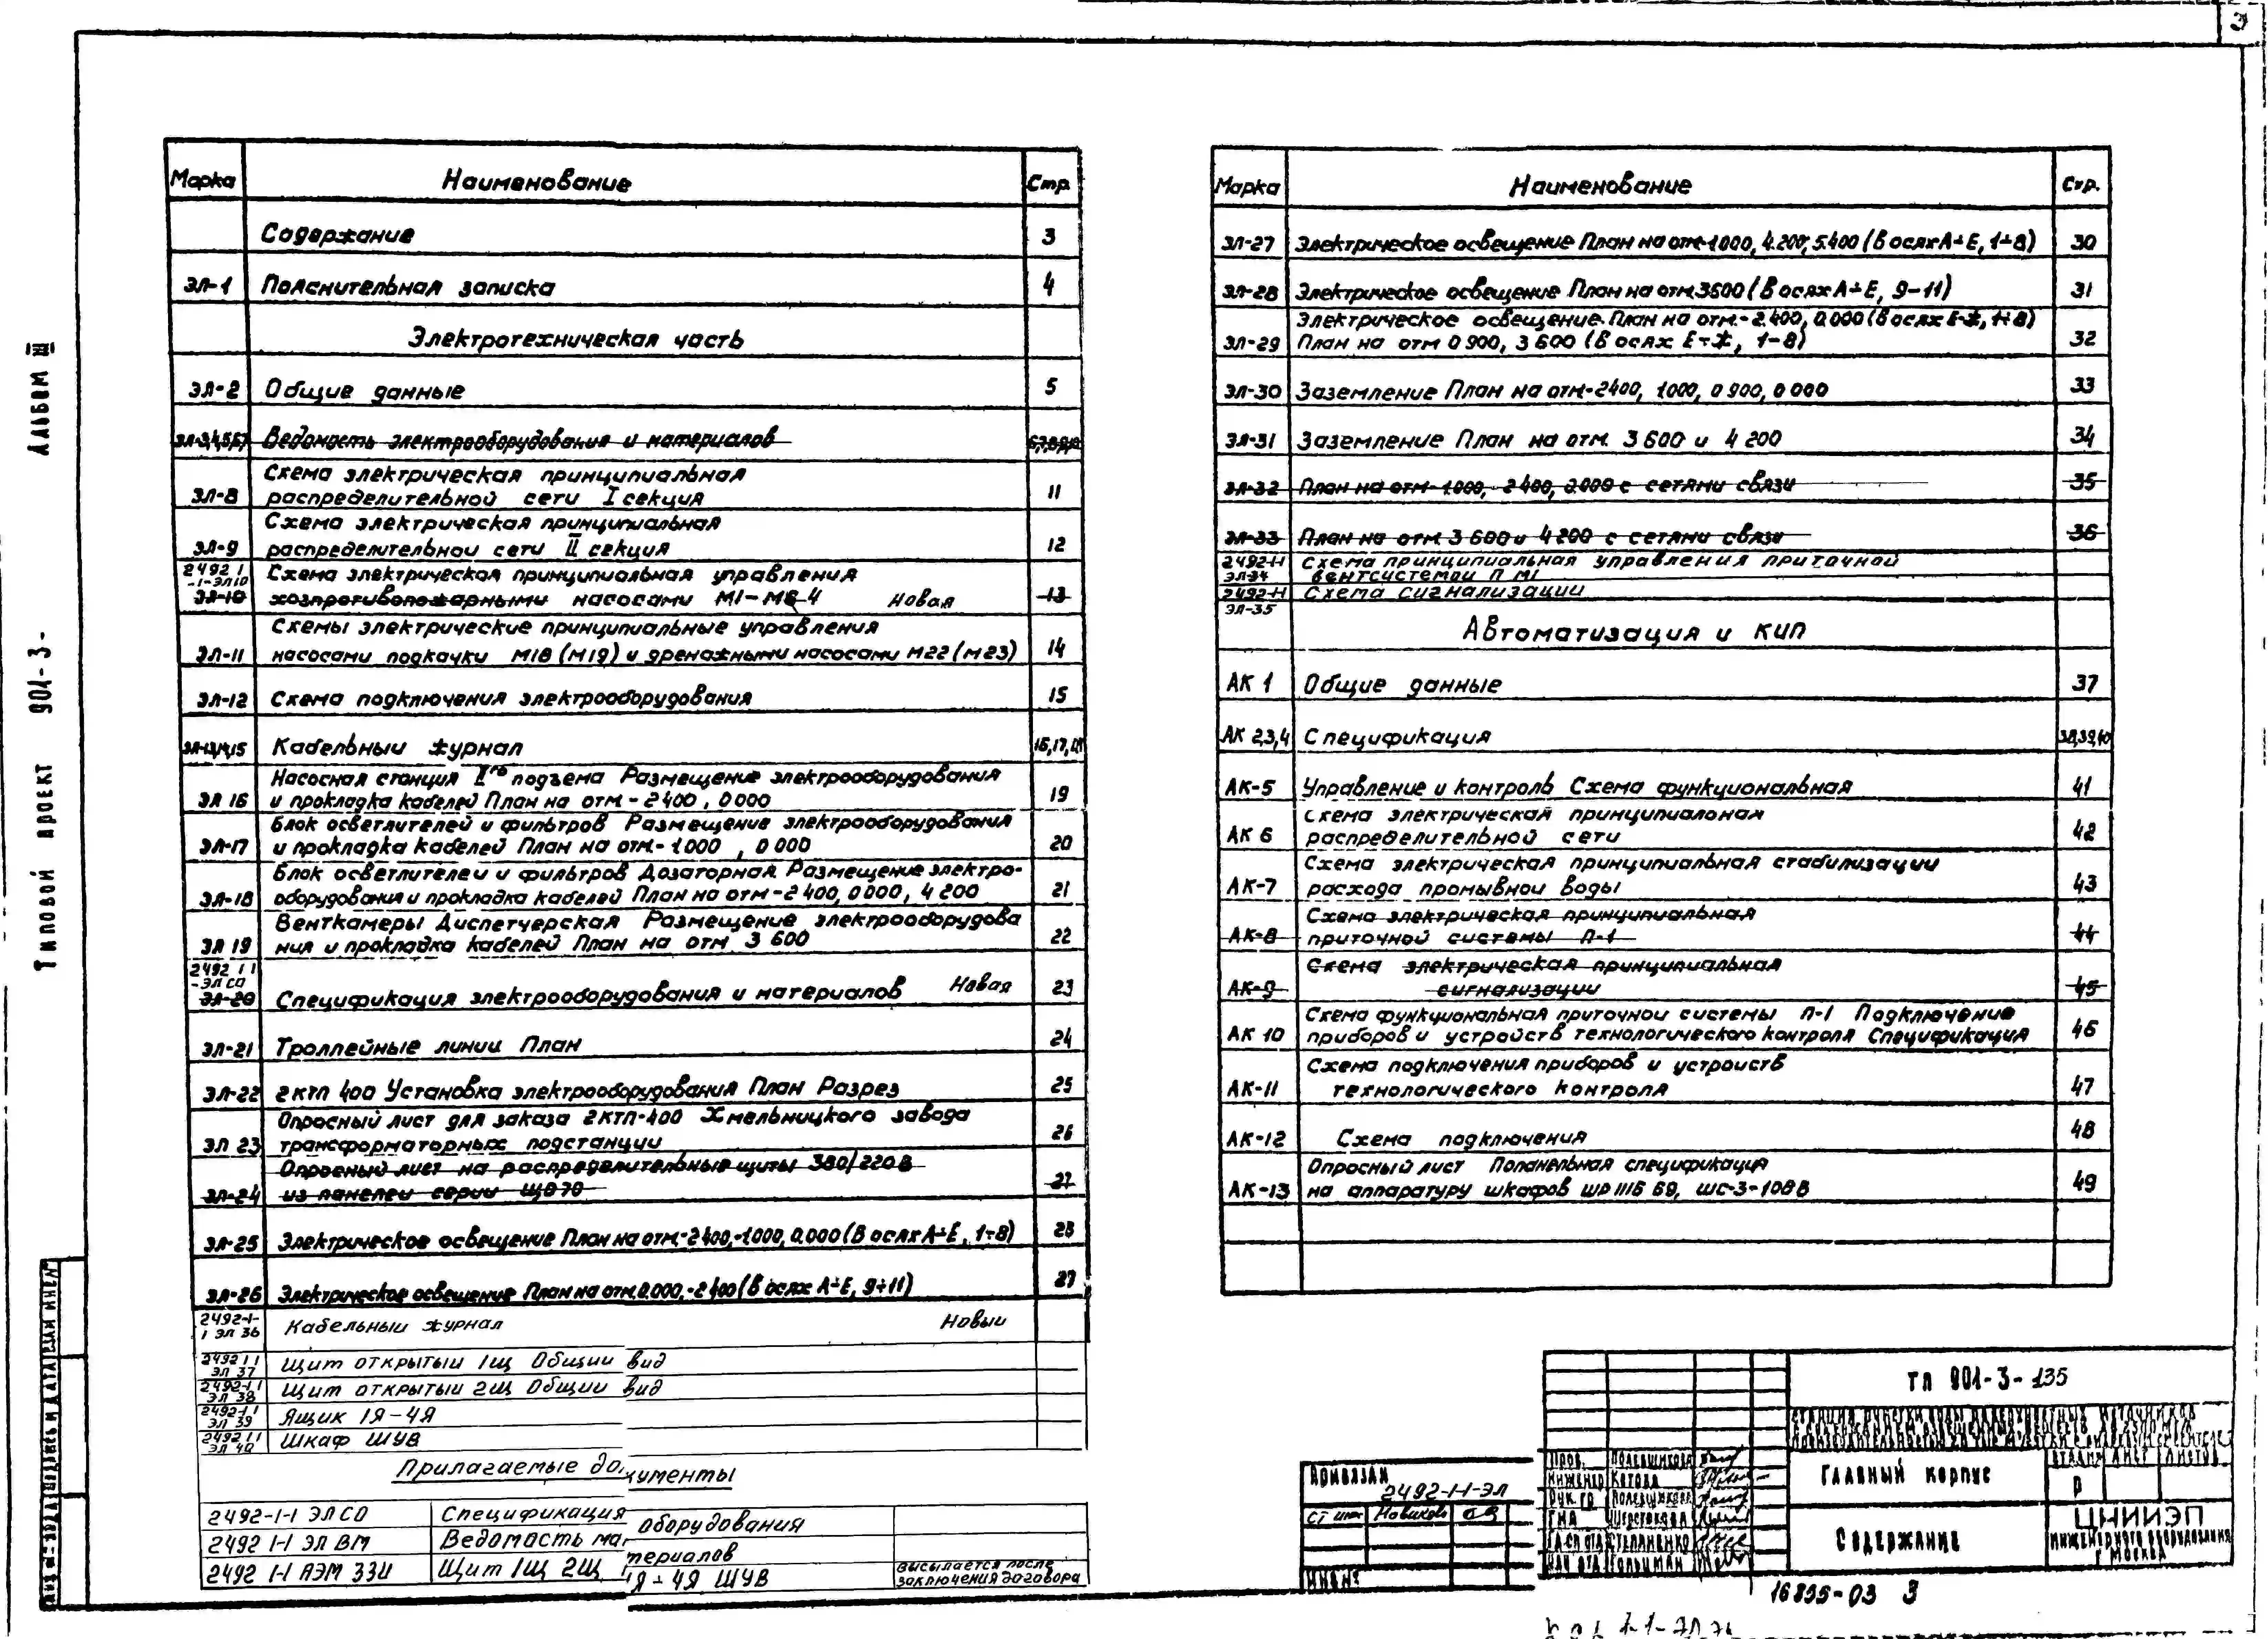 3
Альбом III
Типовой проект 901-3-
Марка Наименование Стр.
Содержание 3
ЭЛ-1 Пояснительная записка 4
Электротехническая часть
ЭЛ-2 Общие данные 5
ЭЛ-3,4,5,6,7 Ведомость электрооборудования и материалов
Схема электрическая принципиальная
ЭЛ-8 распределительной сети I секция 11
Схема электрическая принципиальная
ЭЛ-9 распределительной сети II секция 12
2492 1 Схема электрическая принципиальная управления
-1-ЭЛ10
ЭЛ-10 хозпротивопожарными насосами М1-М6 4 Новая 13
Схемы электрические принципиальные управления
ЭЛ-11 насосами подкачки М18 (М19) и дренажными насосами М22 (М23) 14
ЭЛ-12 Схема подключения электрооборудования 15
ЭЛ-13,14,15 Кабельный журнал 16,17,18
Насосная станция IIго подъема Размещение электрооборудования
ЭЛ 16 и прокладка кабелей План на отм -2400, 0000 19
Блок осветлителей и фильтров Размещение электрооборудования
ЭЛ-17 и прокладка кабелей План на отм -1.000 , 0 000 20
Блок осветлителей и фильтров Дозаторная Размещение электро-
ЭЛ-18 оборудования и прокладка кабелей План на отм -2 400, 0000, 4 200 21
Венткамеры Диспетчерская Размещение электрооборудова
ЭЛ 19 ния и прокладка кабелей План на отм 3 600 22
2492 1 1
-ЭЛ СО
ЭЛ-20 Спецификация электрооборудования и материалов Новая 23
ЭЛ-21 Троллейные линии План 24
ЭЛ-22 2КТП 400 Установка электрооборудования План Разрез 25
Опросный лист для заказа 2КТП-400 Хмельницкого завода
ЭЛ 23 трансформаторных подстанции 26
Опросный лист на распределительные щиты 380/220 В
ЭЛ-24 из панелей серии ЩО 70 27
ЭЛ-25 Электрическое освещение План на отм -2400, -1.000, 0.000 (в осях А÷Е, 1÷8) 28
ЭЛ-26 Электрическое освещение План на отм. 0.000, -2 400 (в осях А÷Е, 9÷11) 29
2492-1-
1 ЭЛ 36 Кабельный журнал Новый
2492 1 1
ЭЛ 37 Щит открытый 1Щ Общий вид
2492-1 1
ЭЛ 38 Щит открытый 2Щ Общий вид
2492-1 1
ЭЛ 39 Ящик 1Я-4Я
2492 1 1
ЭЛ 40 Шкаф ШУВ
Прилагаемые документы
2492-1-1 ЭЛ СО Спецификация оборудования
2492 1-1 ЭЛ ВМ Ведомость материалов
2492 1-1 АЭМ ЗЗИ Щит 1Щ 2Щ 1Я÷4Я ШУВ высылается после
заключения договора
Марка Наименование Стр.
ЭЛ-27 Электрическое освещение План на отм -1.000, 4.200, 5.400 (в осях А÷Е, 1÷8) 30
ЭЛ-28 Электрическое освещение План на отм 3.600 (в осях А÷Е, 9-11) 31
Электрическое освещение. План на отм. -2.400, 0.000 (в осях Е-Ж, 1÷8)
ЭЛ-29 План на отм 0 900, 3 600 (в осях Е÷Ж, 1-8) 32
ЭЛ-30 Заземление План на отм -2400, 1000, 0 900, 0 000 33
ЭЛ-31 Заземление План на отм 3 600 и 4 200 34
ЭЛ-32 План на отм -1.000, -2 400, 0.000 с сетями связи 35
ЭЛ-33 План на отм 3 600 и 4 200 с сетями связи 36
2492-1-1 Схема принципиальная управления приточной
ЭЛ-34 вентсистемой П М1
2492-1-1 Схема сигнализации
ЭЛ-35
Автоматизация и КИП
АК 1 Общие данные 37
АК 2,3,4 Спецификация 38,39,40
АК-5 Управление и контроль Схема функциональная 41
Схема электрическая принципиальная
АК 6 распределительной сети 42
Схема электрическая принципиальная стабилизации
АК-7 расхода промывной воды 43
Схема электрическая принципиальная
АК-8 приточной системы П-1 44
Схема электрическая принципиальная
АК-9 сигнализации 45
Схема функциональная приточной системы П-1 Подключение
АК 10 приборов и устройств технологического контроля Спецификация 46
Схема подключения приборов и устройств
АК-11 технологического контроля 47
АК-12 Схема подключения 48
Опросный лист Попанельная спецификация
АК-13 на аппаратуру шкафов 49
ТП 901-3-135
Главный корпус
Р
Содержание
ЦНИИЭП
инженерного оборудования
г Москва
Привязан
2492-1-1-ЭЛ
Ст инж Новиков
Инв №
Пров. Полевщикова
Инженер Котова
Рук. гр Полевщикова
Нач отд Гольцман
16835-03 3